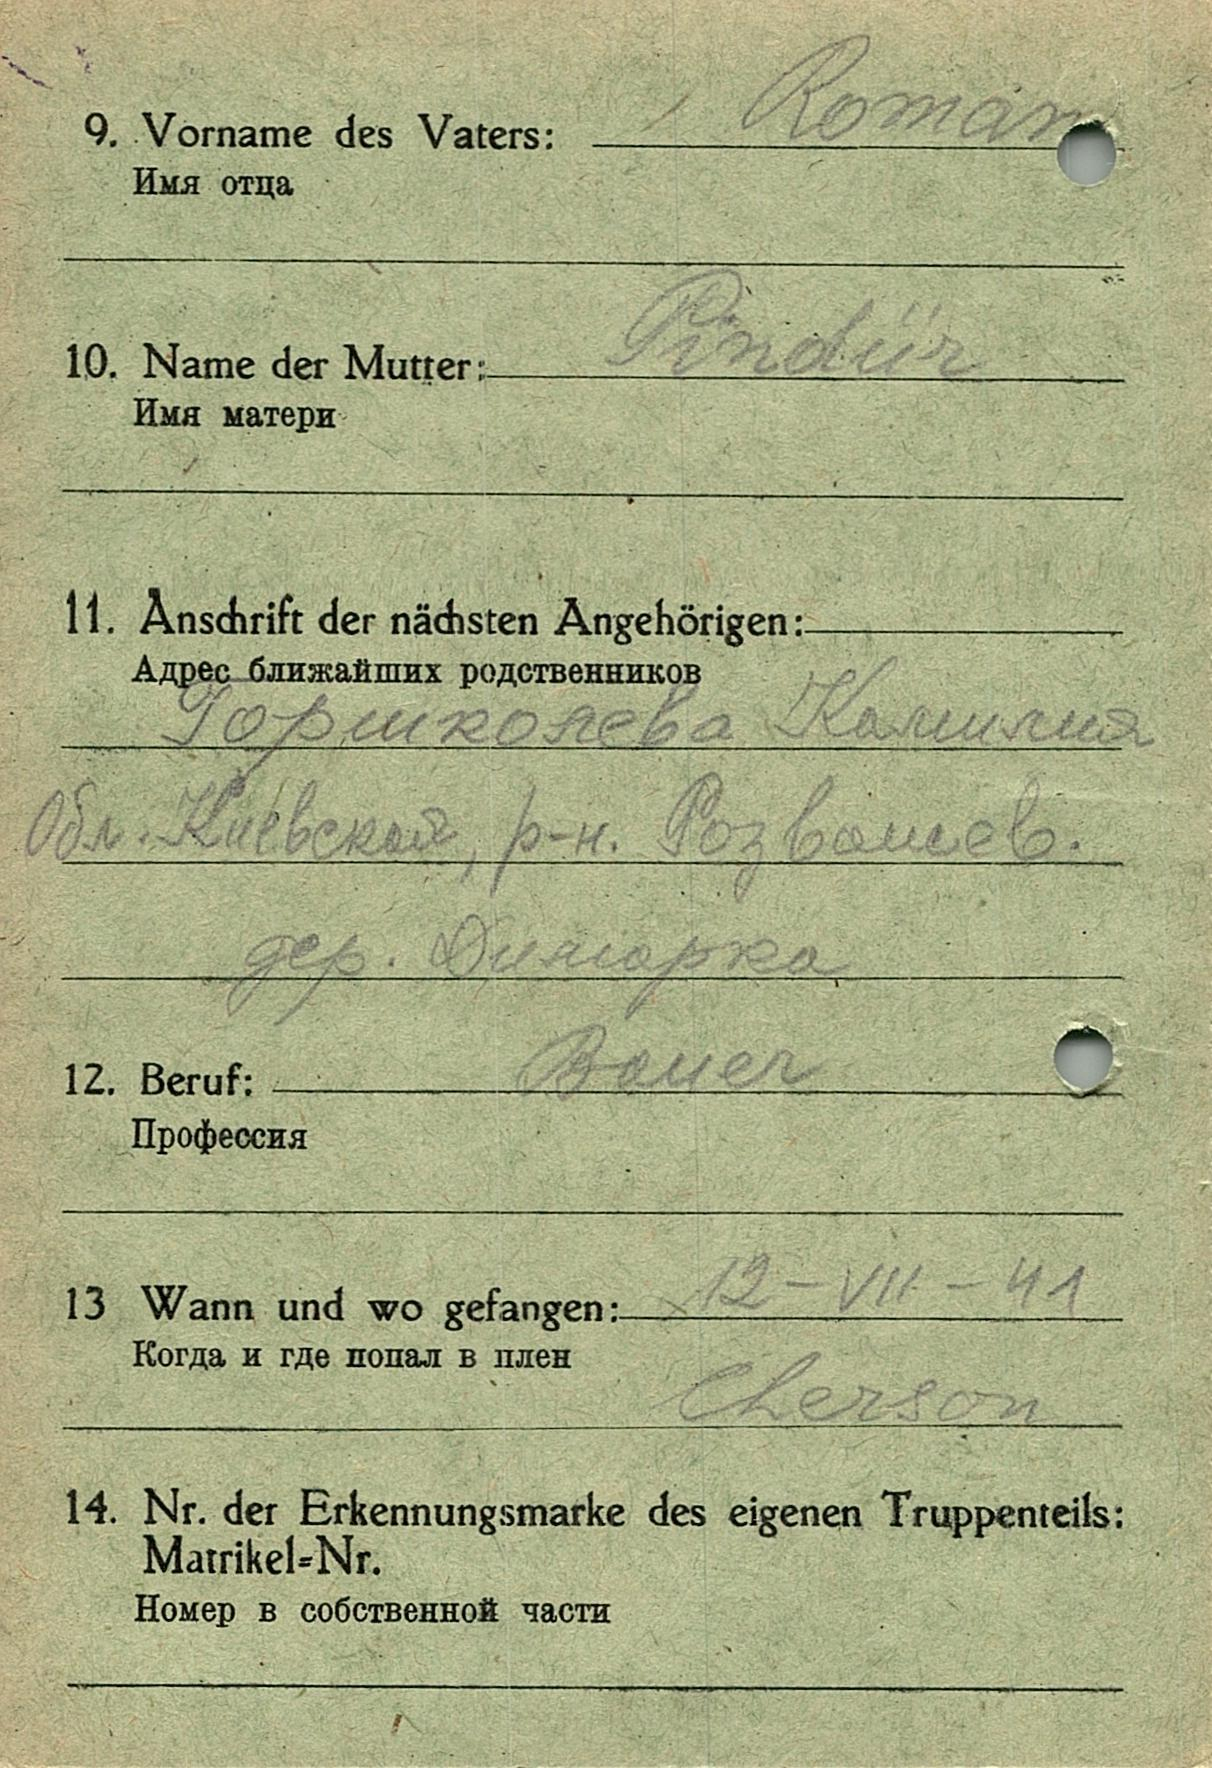 9. Vorname des Vaters: Roman
Имя отца
10. Name der Mutter: Pindür
Имя матери
11. Anschrift der nächsten Angehörigen:
Адрес ближайших родственников
Горшколева Камилия
Обл. Киевской, р-н. Розважев.
дер.
12. Beruf: Bauer
Профессия
13 Wann und wo gefangen: 12-VII-41
Когда и где попал в плен
Cherson
14. Nr. der Erkennungsmarke des eigenen Truppenteils:
Matrikel=Nr.
Номер в собственной части